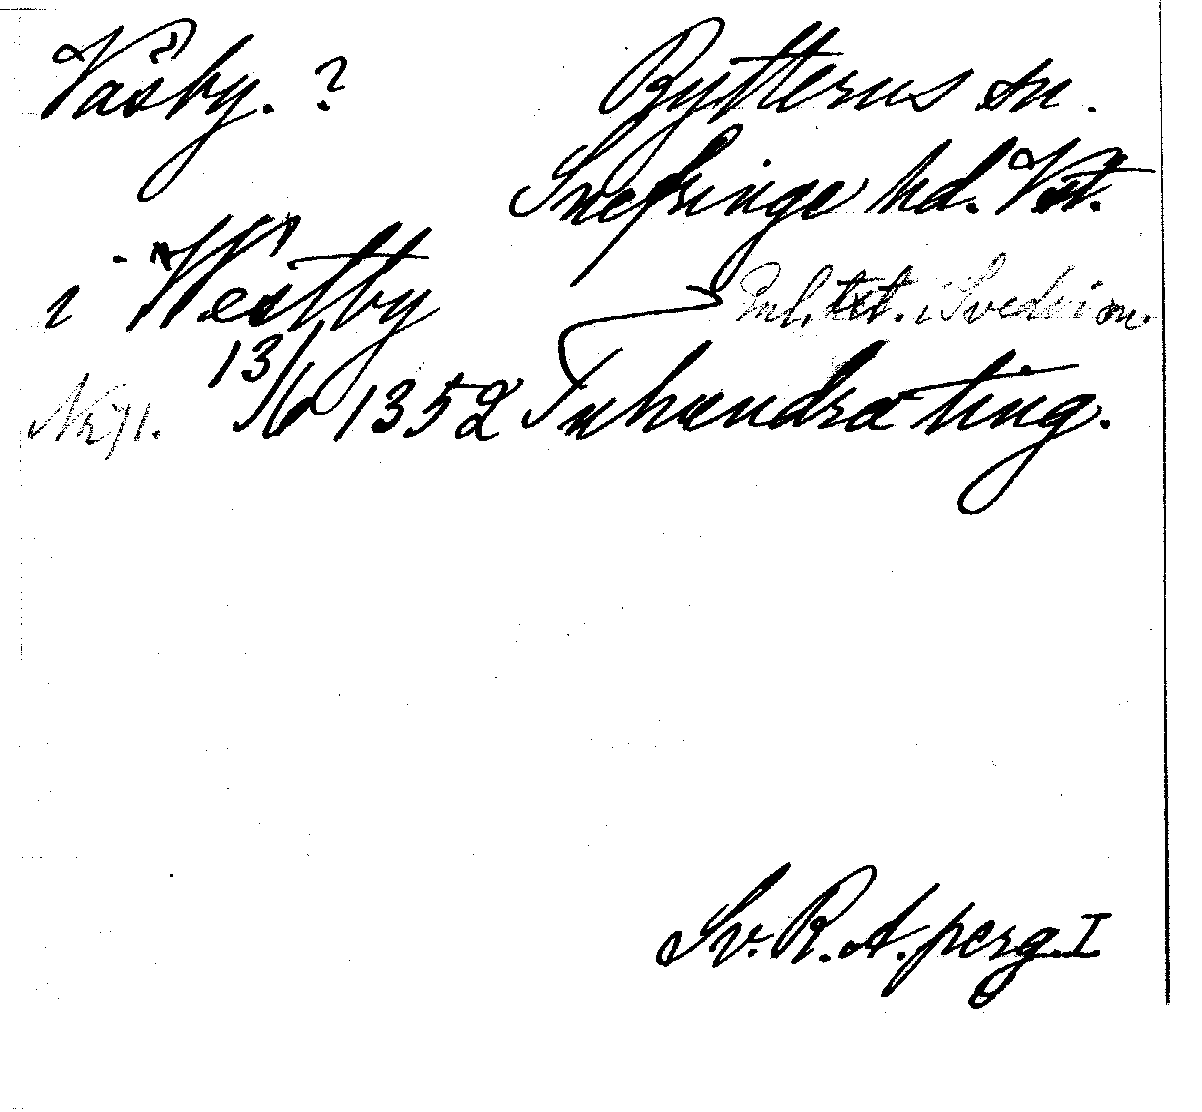 Väsby. ? Rytterns sn.
Snefringe hd. Vst.
i Westby Enl. txt. i Svedvi sn.
Nr 71. 13/6 1352 Tuhundra ting.
Sv. R. A. perg. I